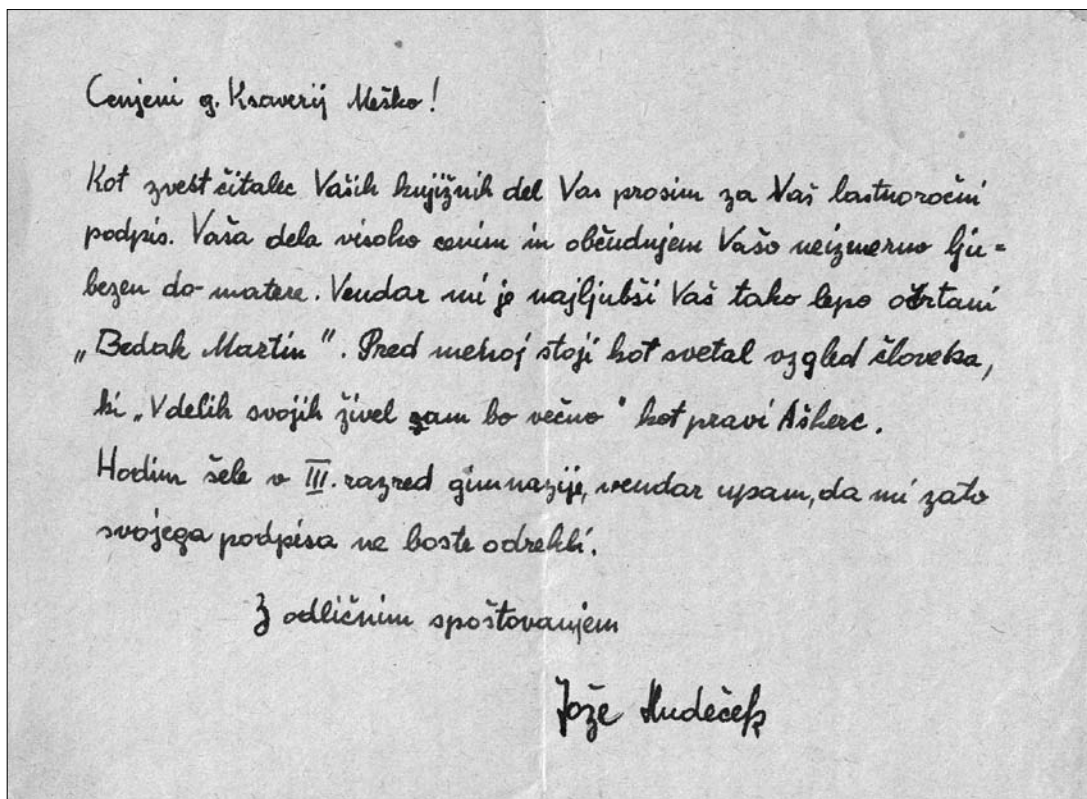 Cenjeni g. Ksaverij Meško!
Kot zvest čitalec Vaših knjižnih del Vas prosim za Vaš lastnoročni
podpis. Vaša dela visoko cenim in občudujem Vašo neizmerno lju=
bezen do matere. Vendar mi je najljubši Vaš tako lepo očrtani
„Bedak Martin". Pred menoj stoji kot svetal vzgled človeka,
ki „V delih svojih živel sam bo večno" kot pravi Aškerc.
Hodim šele v III. razred gimnazije, vendar upam, da mi zato
svojega podpisa ne boste odrekli.
Z odličnim spoštovanjem
Jože Hudeček